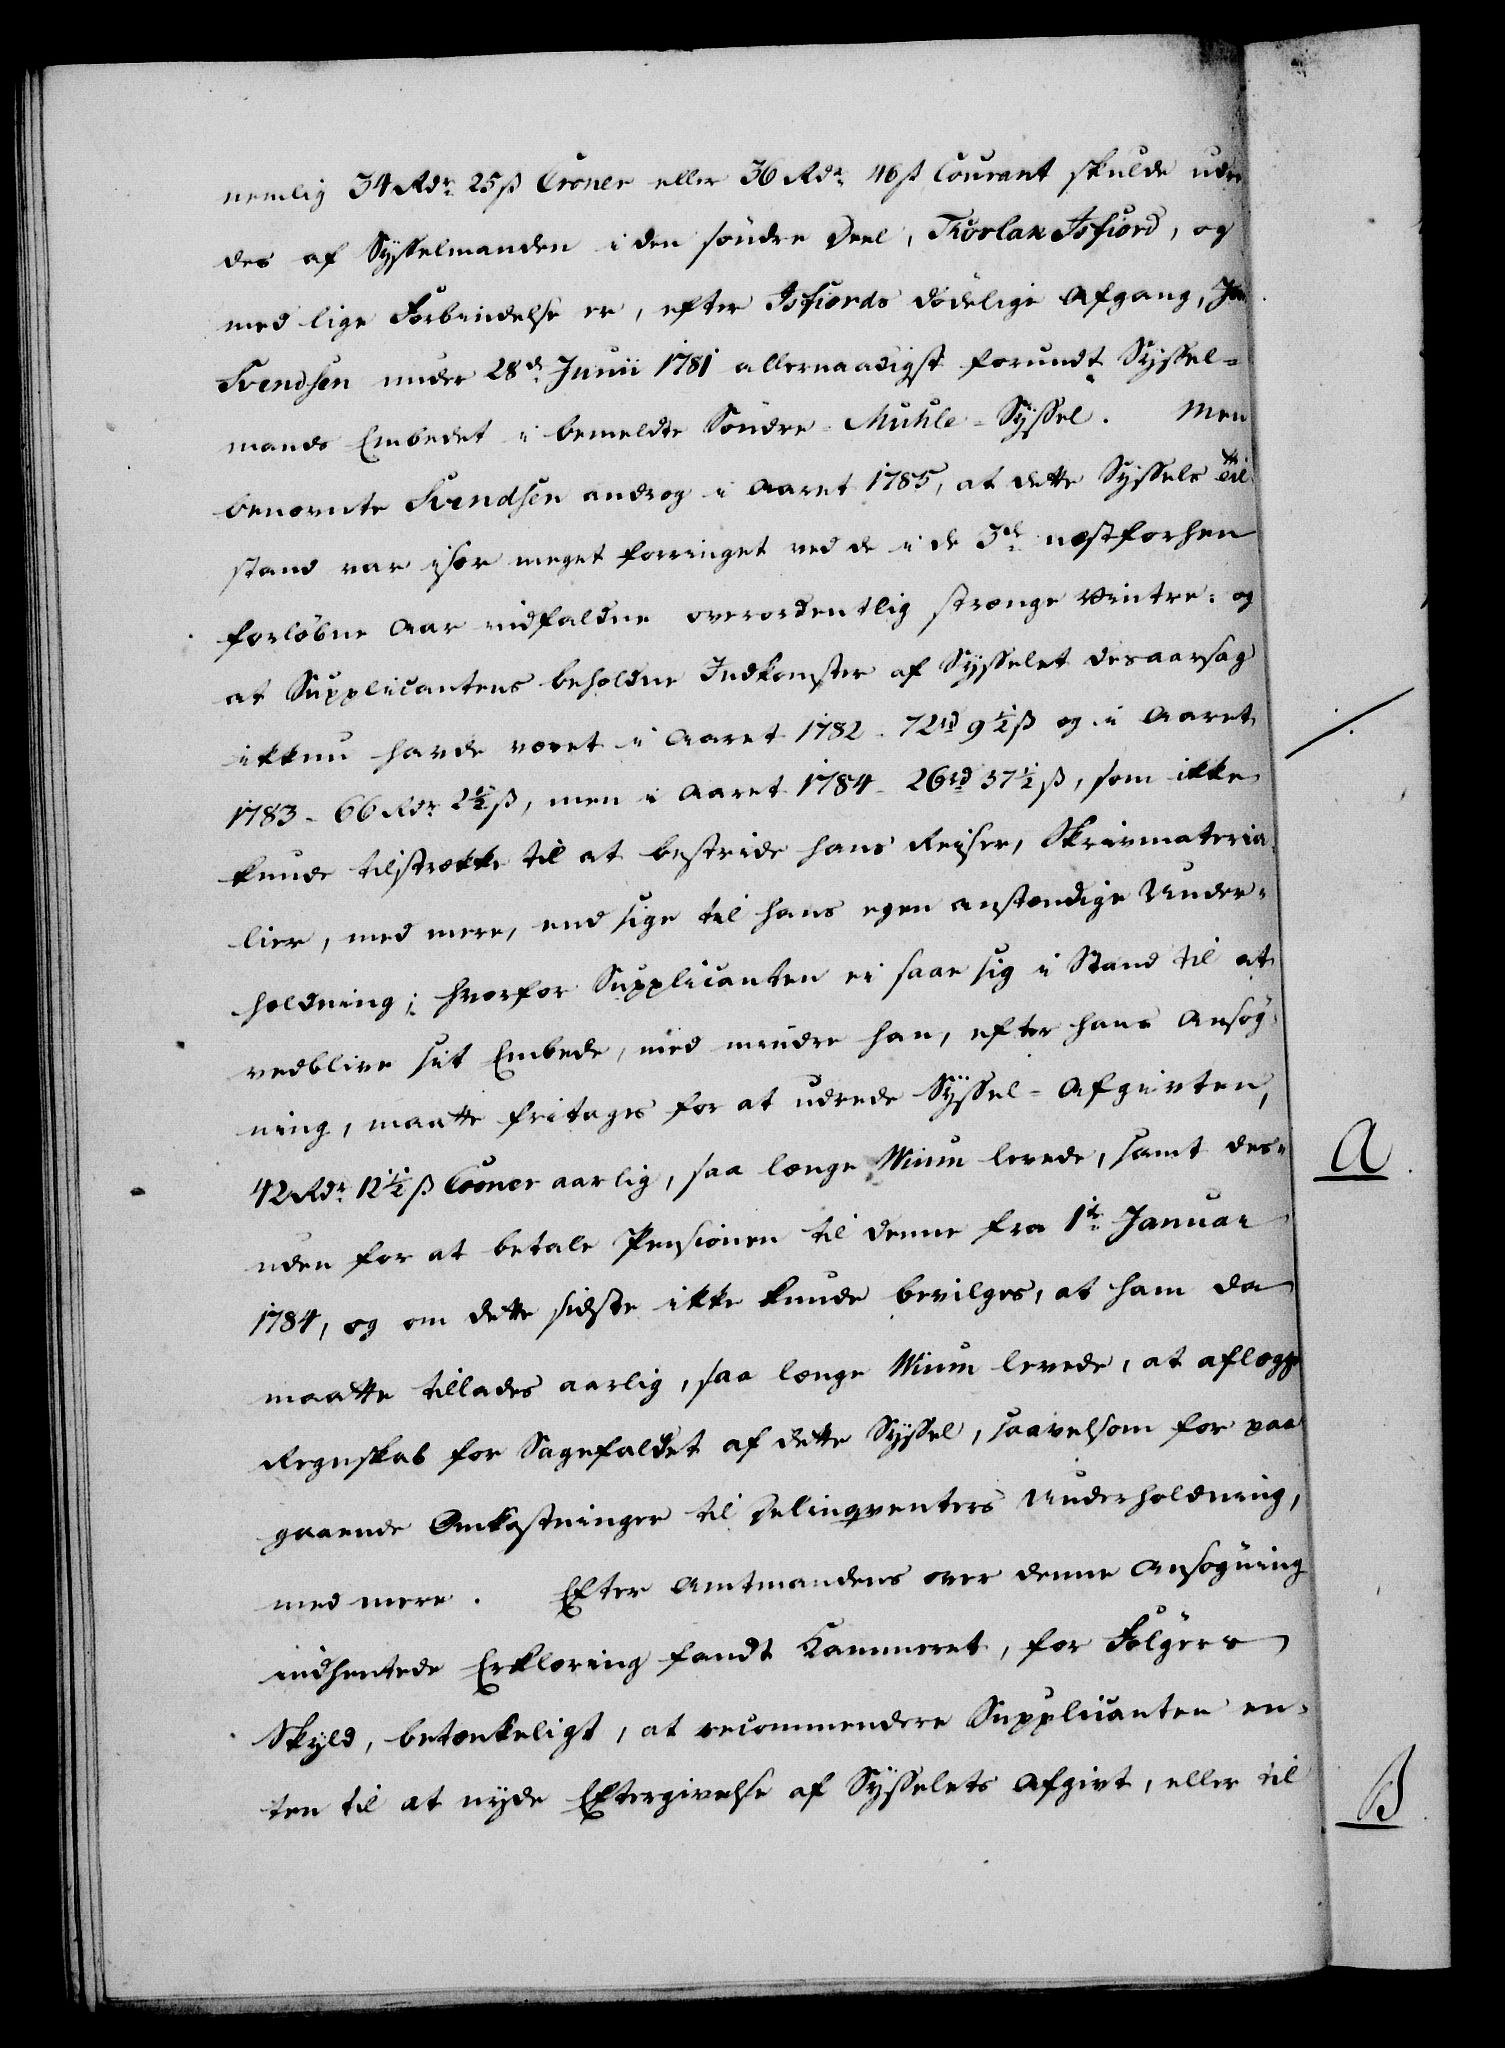 nemlig 34 Rdr. 25 ß Croner eller 36 Rdr. 46 ß Courant skulde udre
des af Sysselmanden i den söndre Deel, Thorlak Isfiord, og
med lige Forbindelse er, efter Isfiords dödelige Afgang, Jon
Svendsen under 28de Junii 1781 allernaadigst forundt Syssel-
mands Embedet i bemeldte Söndre-Muhle-Syssel. Men
benævnte Svendsen androg i Aaret 1785, at dette Syssels Til
stand var især meget forringet ved de i de 3de næstforhen
forløbne Aar indfaldne overordentlig strænge Vintre: og
at Supplicantens beholdne Indkomster af Sysselet desaarsag
ikkun havde været i Aaret 1782 - 72rd 9½ ß og i Aaret
1783 - 66 Rdr 2½ ß, men i Aaret 1784 - 26rd 37½ ß, som ikke
kunde tilstrække til at bestride hans Reiser, Skrivmateria
lier, med mere, end sige til hans egen anstændige Under-
holdning; hvorfor Supplicanten ei saae sig i Stand til at
vedblive sit Embede, med mindre han, efter hans Ansøg-
ning, maatte fritages for at udrede Syssel-Afgivten,
42 Rdr. 12½ ß Croner aarlig, saa længe Wium levede, samt des-
uden for at betale Pensionen til denne fra 1te Januar
1784, og om dette sidste ikke kunde bevilges, at ham da
maatte tillades aarlig, saa længe Wium levede, at aflægge
Regnskab for Sagefaldet af dette Syssel, saavelsom for paa
gaaende Omkostninger til Delinqventers Underholdning,
med mere. Efter Amtmandens over denne Ansøgning
indhentede Erklæring fandt Kammeret, for Følgers
Skyld, betænkeligt, at recommendere Supplicanten en-
ten til at nyde Eftergivelse af Sysselets Afgivt, eller til
A
B